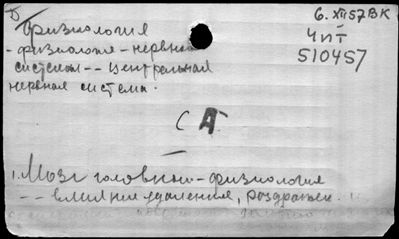 Б
Физиология
6. XII 57 ВК
- физиология - нервной
ЧПТ
системы -- центральная
510457
нервная система.
С А
1. Мозг головной - физиология
-- влияние удаления, раздражен.